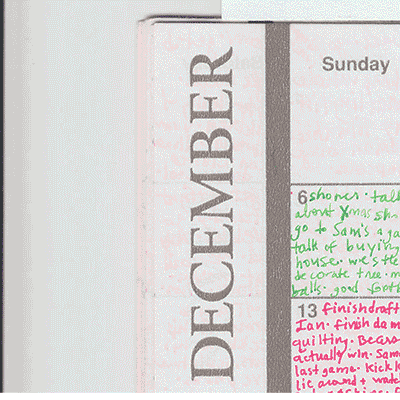 DECEMBER
Sunday
6 shower · talk
about Xmas sh
go to Sam's a ga
talk of buying
house. westle
decorate tree · m
balls · good
13 finish draft
Ian · finish dam
quilting · Bears
actually win. Sam
last game. Kick
lie around + watch